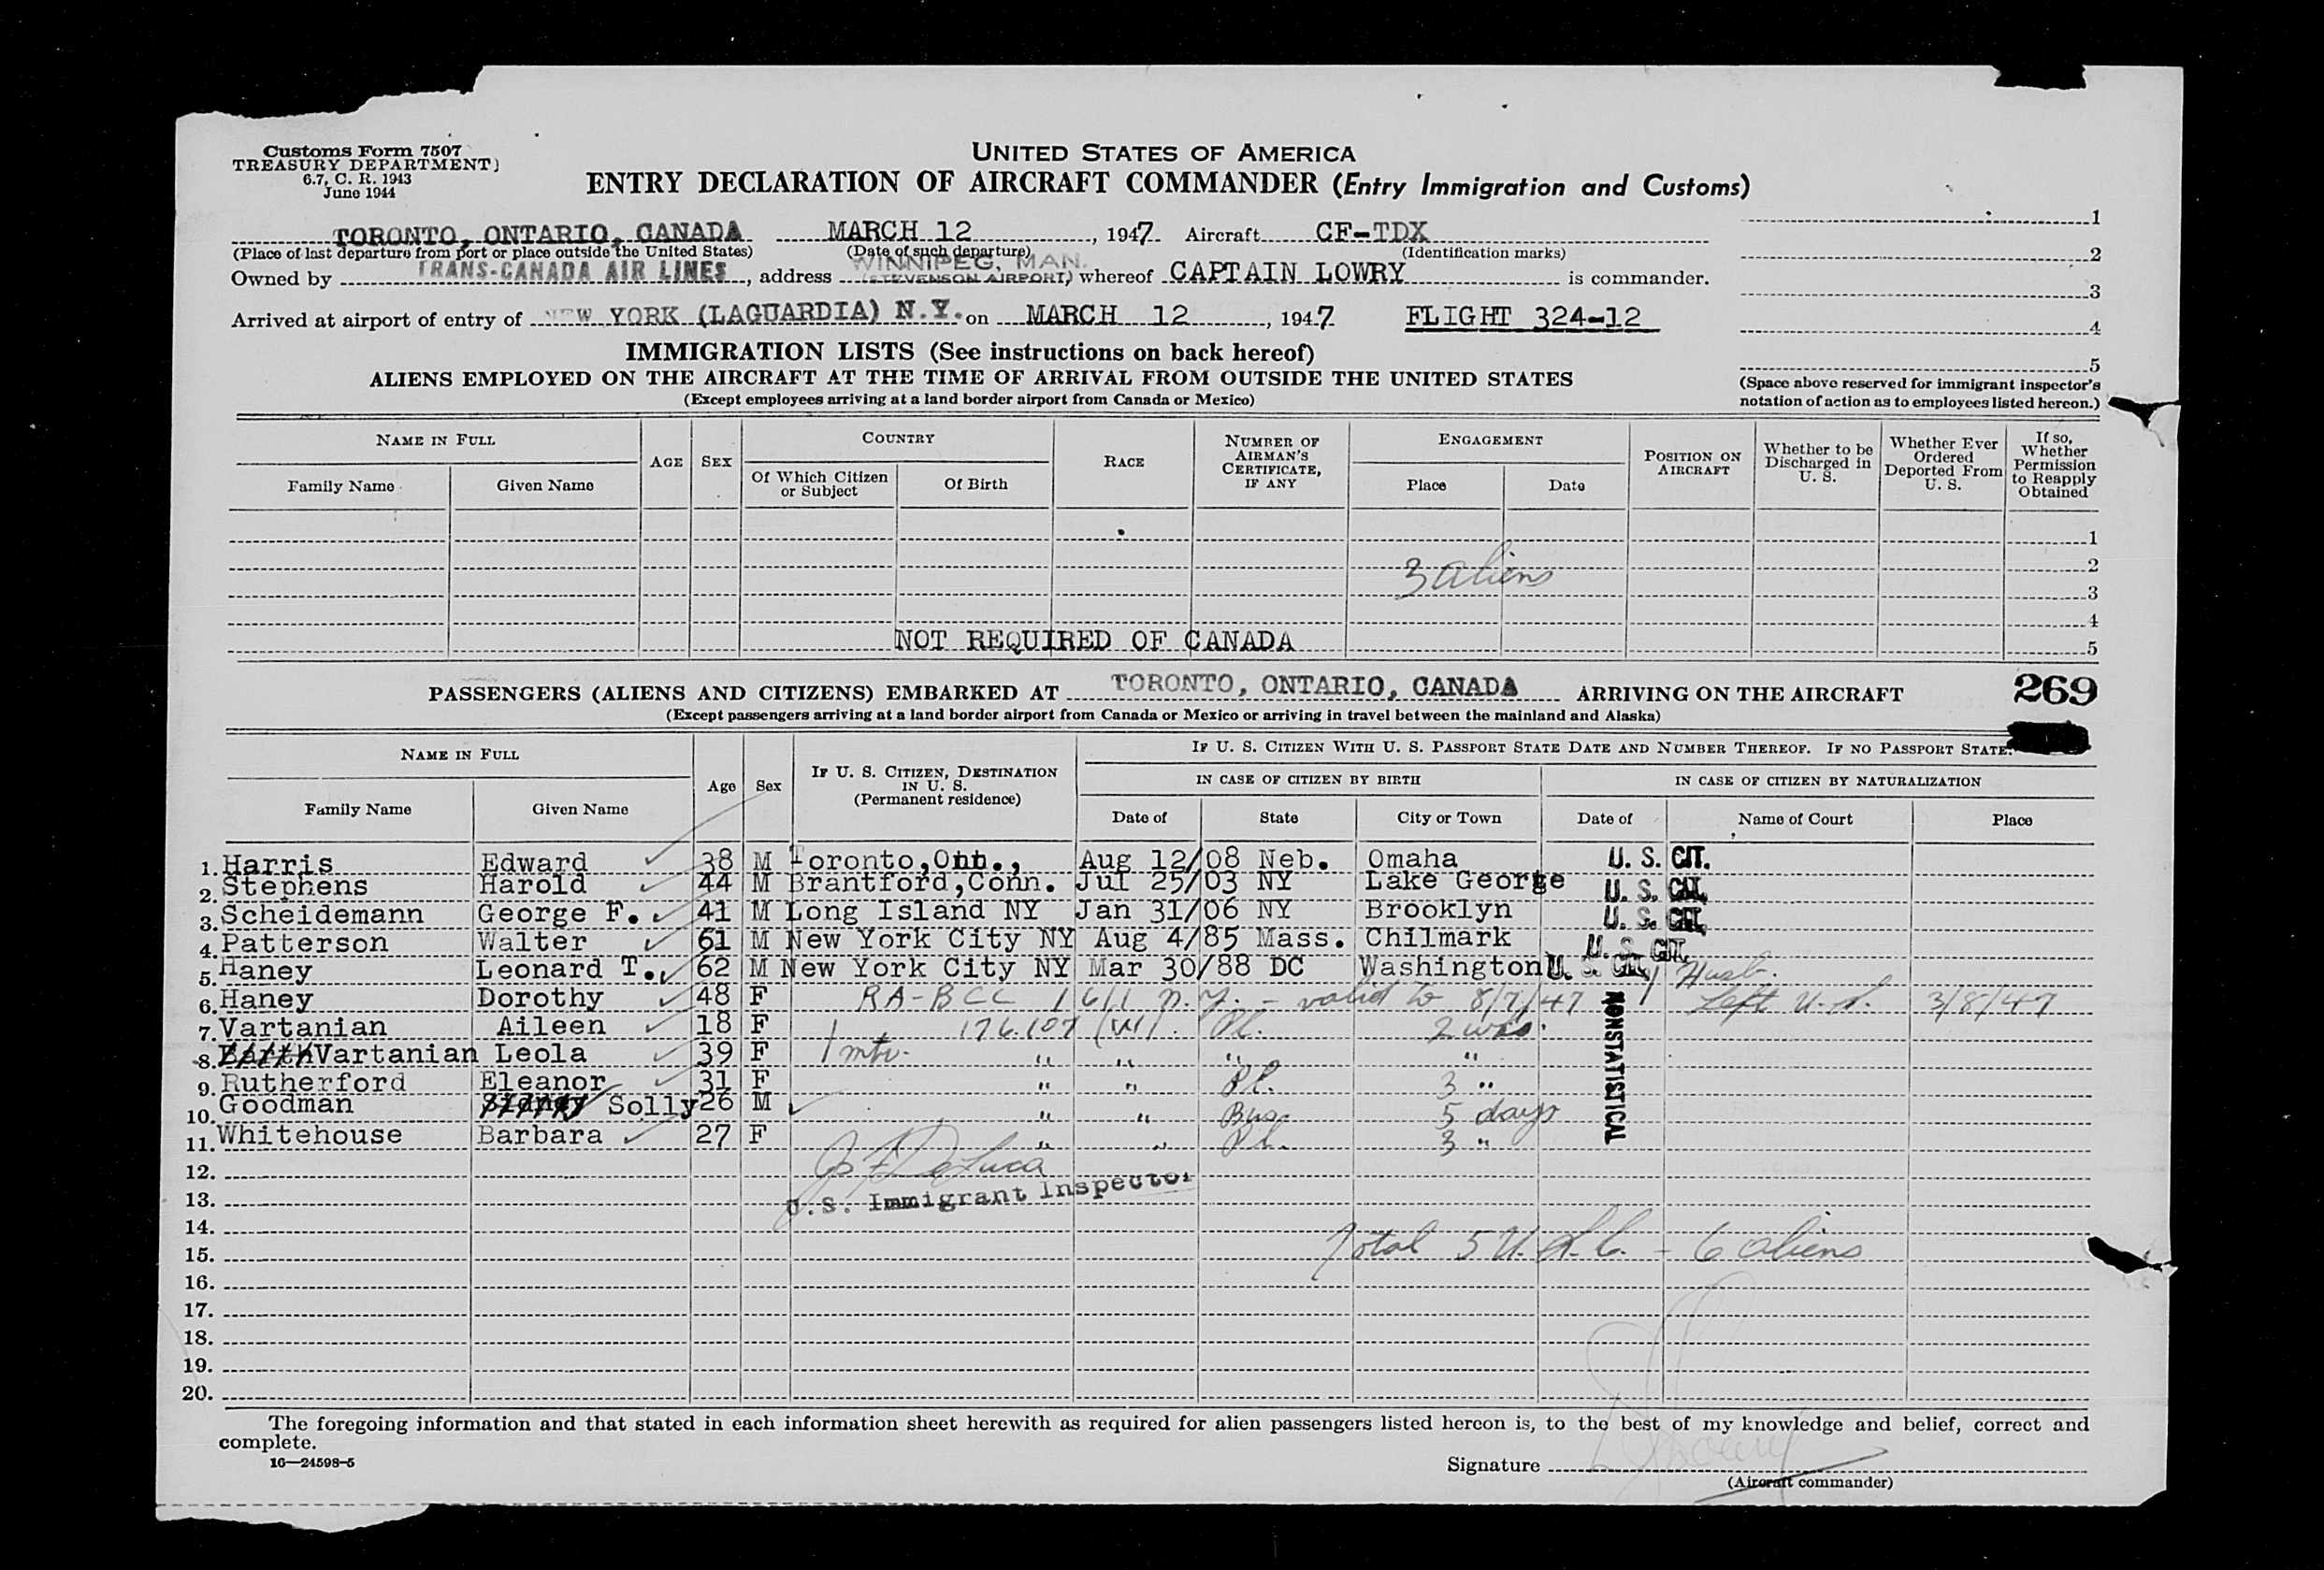 Customs Form 7507
TREASURY DEPARTMENT)
6.7, C. R. 1943
June 1944
UNITED STATES OF AMERICA
ENTRY DECLARATION OF AIRCRAFT COMMANDER (Entry Immigration and Customs)
TORONTO, ONTARIO, CANADA MARCH 12, 1947 Aircraft CF-TDX 1
(Place of last departure from port or place outside the United States) (Date of such departure) (Identification marks) 2
WINNIPEG, MAN.
Owned by TRANS-CANADA AIR LINES, address (STEVENSON AIRPORT) whereof CAPTAIN LOWRY is commander.
3
Arrived at airport of entry of NEW YORK (LAGUARDIA) N.Y. on MARCH 12, 1947 FLIGHT 324-12 4
IMMIGRATION LISTS (See instructions on back hereof) 5
ALIENS EMPLOYED ON THE AIRCRAFT AT THE TIME OF ARRIVAL FROM OUTSIDE THE UNITED STATES
(Except employees arriving at a land border airport from Canada or Mexico)
(Space above reserved for immigrant inspector's
notation of action as to employees listed hereon.)
NAME IN FULL
Family Name Given Name
AGE SEX
COUNTRY
Of Which Citizen or Subject Of Birth
RACE
NUMBER OF AIRMAN'S CERTIFICATE, IF ANY
ENGAGEMENT
Place Date
POSITION ON AIRCRAFT
Whether to be Discharged in U. S.
Whether Ever Ordered Deported From U. S.
If so, Whether Permission to Reapply Obtained
1
2
3 aliens
3
4
NOT REQUIRED OF CANADA 5
PASSENGERS (ALIENS AND CITIZENS) EMBARKED AT TORONTO, ONTARIO, CANADA ARRIVING ON THE AIRCRAFT 269
(Except passengers arriving at a land border airport from Canada or Mexico or arriving in travel between the mainland and Alaska)
NAME IN FULL
Family Name Given Name
Age Sex
IF U. S. CITIZEN, DESTINATION IN U. S. (Permanent residence)
IF U. S. CITIZEN WITH U. S. PASSPORT STATE DATE AND NUMBER THEREOF. IF NO PASSPORT STATE:
IN CASE OF CITIZEN BY BIRTH IN CASE OF CITIZEN BY NATURALIZATION
Date of State City or Town Date of Name of Court Place
1. Harris Edward 38 M Toronto, Ont., Aug 12/08 Neb. Omaha U. S. CIT.
2. Stephens Harold 44 M Brantford, Conn. Jul 25/03 NY Lake George U. S. CIT.
3. Scheidemann George F. 41 M Long Island NY Jan 31/06 NY Brooklyn U. S. CIT.
4. Patterson Walter 61 M New York City NY Aug 4/85 Mass. Chilmark U. S. CIT.
5. Haney Leonard T. 62 M New York City NY Mar 30/88 DC Washington U. S. CIT. Husb.
6. Haney Dorothy 48 F RA-BCC 1611 N.Y. - valid to 8/7/47 Left U.S. 3/8/47
7. Vartanian Aileen 18 F 176.107 (W) Pl. 2 wks.
8. Vartanian Leola 39 F 1 mtr. " " " "
9. Rutherford Eleanor 31 F " " Pl. 3 "
10. Goodman Solly 26 M " " Bus. 5 days
11. Whitehouse Barbara 27 F " " Pl. 3 "
NONSTATISTICAL
12. DeLuca
13. U.S. Immigrant Inspector
14.
15. Total 5 U.S.C. - 6 aliens
16.
17.
18.
19.
20.
The foregoing information and that stated in each information sheet herewith as required for alien passengers listed hereon is, to the best of my knowledge and belief, correct and
complete.
16—24598-5
Signature
(Aircraft commander)